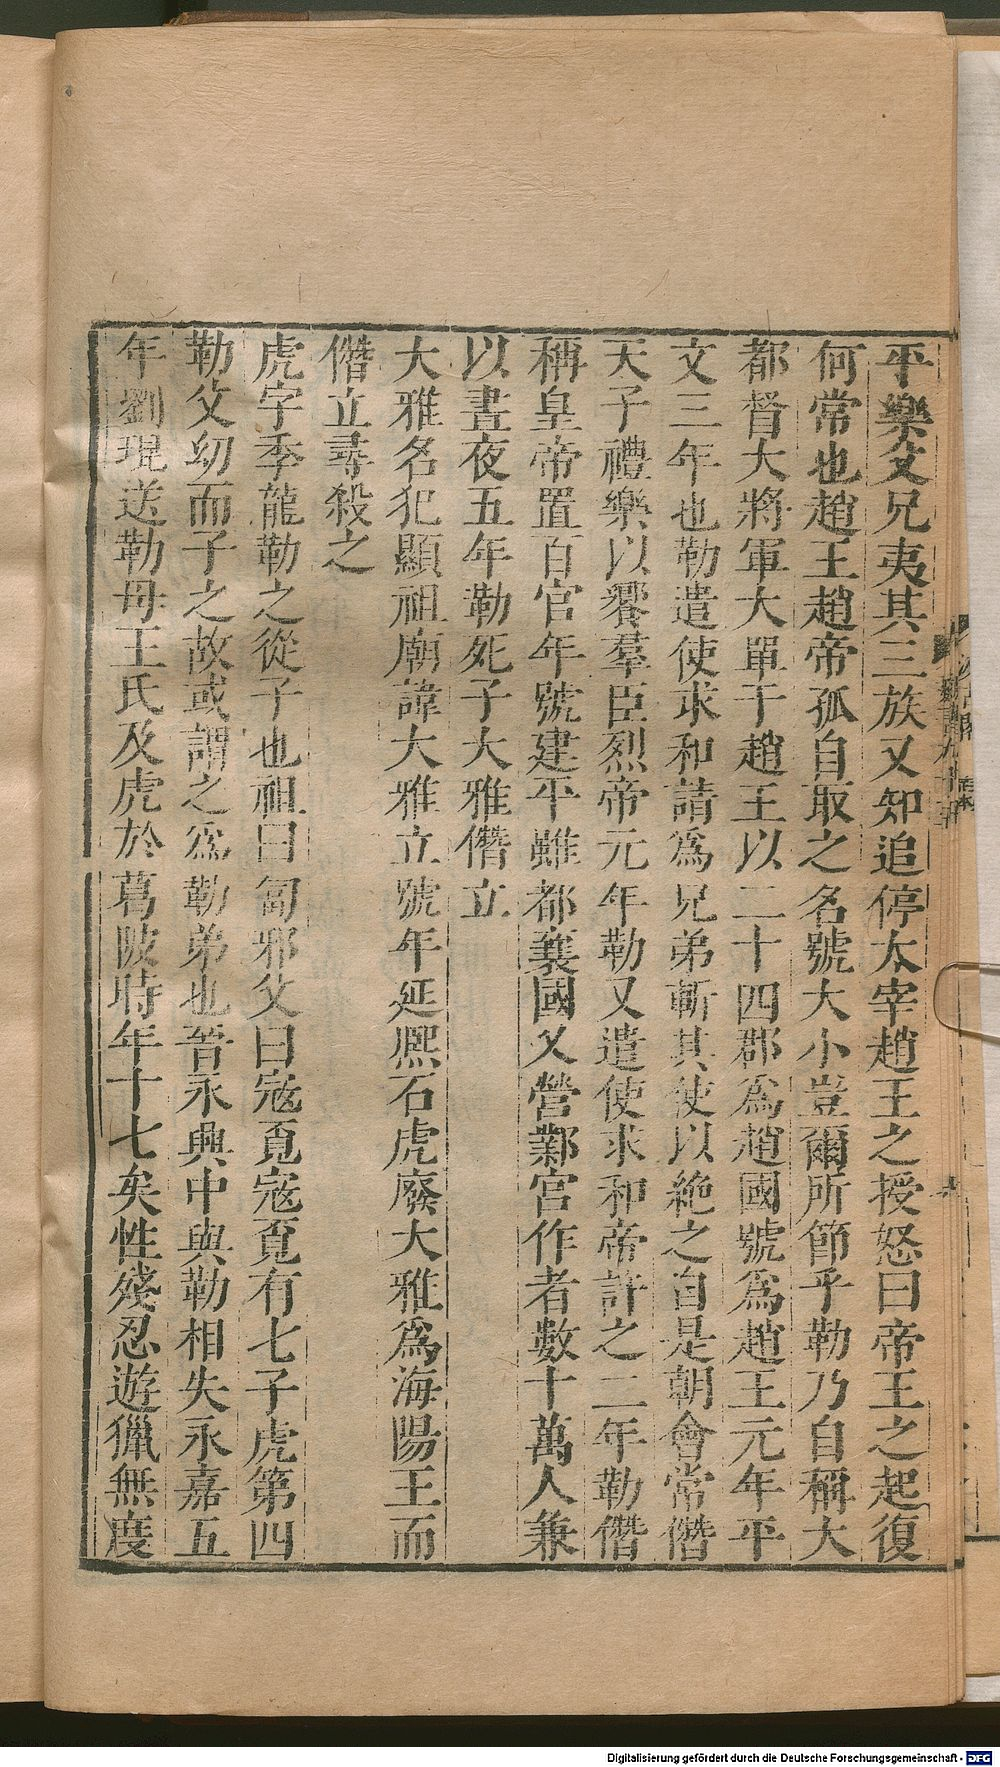 平樂父兄夷其三族又知追停太宰趙王之授怒曰帝王之起復
何常也趙王趙帝孤自取之名號大小豈爾所節乎勒乃自稱大
都督大將軍大單于趙王以二十四郡爲趙國號爲趙王元年平
文三年也勒遣使求和請爲兄弟斬其使以絶之自是朝會常僭
天子禮樂以饗羣臣烈帝元年勒又遣使求和帝許之二年勒僭
稱皇帝置百官年號建平雖都襄國又營鄴宮作者數十萬人兼
以晝夜五年勒死子大雅僭立
大雅名犯顯祖廟諱大雅立號年延熈石虎廢大雅爲海陽王而
僭立尋殺之
虎字季龍勒之從子也祖曰㔨邪父曰寇覓寇覓有七子虎第四
勒父幼而子之故或謂之爲勒弟也晉永興中與勒相失永嘉五
年劉琨送勒母王氏及虎於葛陂時年十七矣性殘忍遊獵無度
Digitalisierung gefördert durch die Deutsche Forschungsgemeinschaft - DFG